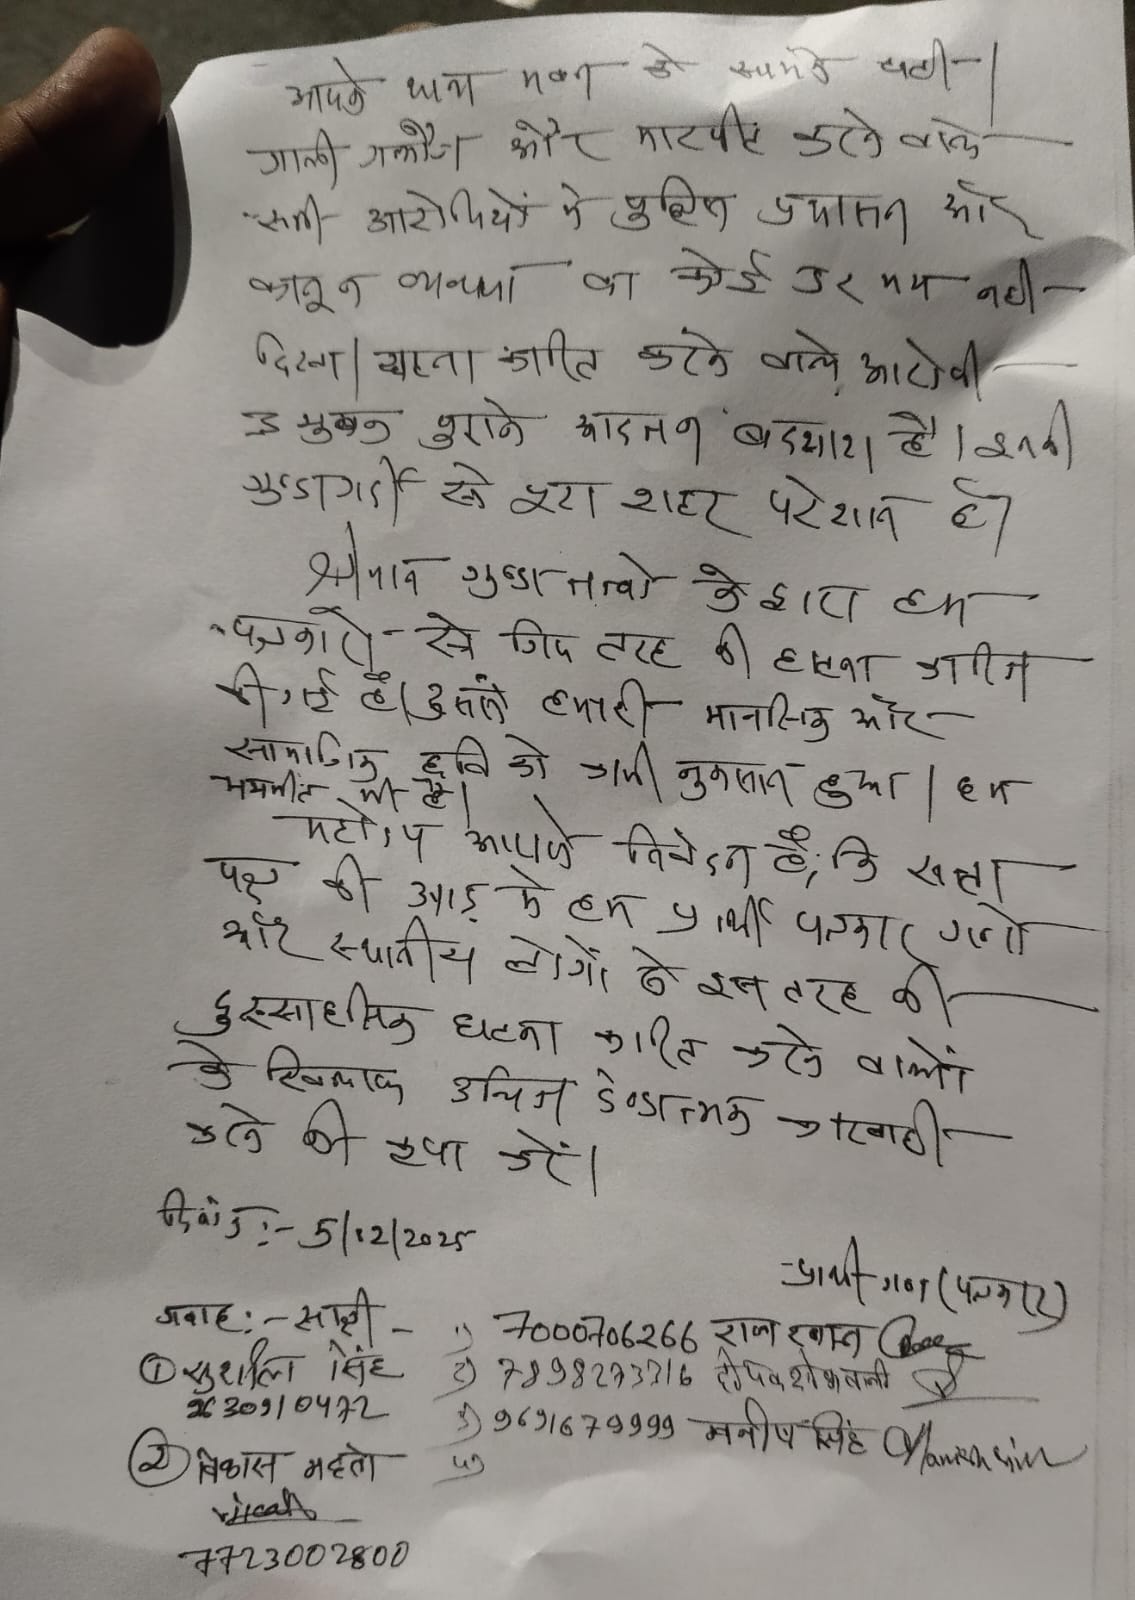 आपके थाना भवन के सामने घटी।
गाली गलौज और मारपीट करने वाले
सभी आरोपियों में पुलिस प्रशासन और
कानून व्यवस्था का कोई डर भय नही
दिखा। घटना कारित करने वाले आरोपी
पुराने आदतन बदमाश है। इनकी
गुण्डागर्दी से पूरा शहर परेशान है।
श्रीमान गुण्डा तत्वो के द्वारा हम
पत्रकारो से जिस तरह की घटना कारित
की गई है। उससे हमारी मानसिक और
सामाजिक छवि को काफी नुकसान हुआ। हम
भयभीत भी है।
महोदय आपसे निवेदन है, कि सत्ता
पक्ष की आड़ मे हम प्रार्थी पत्रकार गणो
और स्थानीय लोगों से इस तरह की
दुस्साहसिक घटना कारित करने वालों
के खिलाफ उचित दण्डात्मक कारवाही
करने की कृपा करें।
दिनांक :- 5/12/2025
प्रार्थी गण (पत्रकार)
गवाह :- साक्षी
1) 7000706266 राज
① सुशीला सिंह
2) 7898273316
9630910472
3) 9691679999 मनीष सिंह
② विकास महतो
4)
7723002800